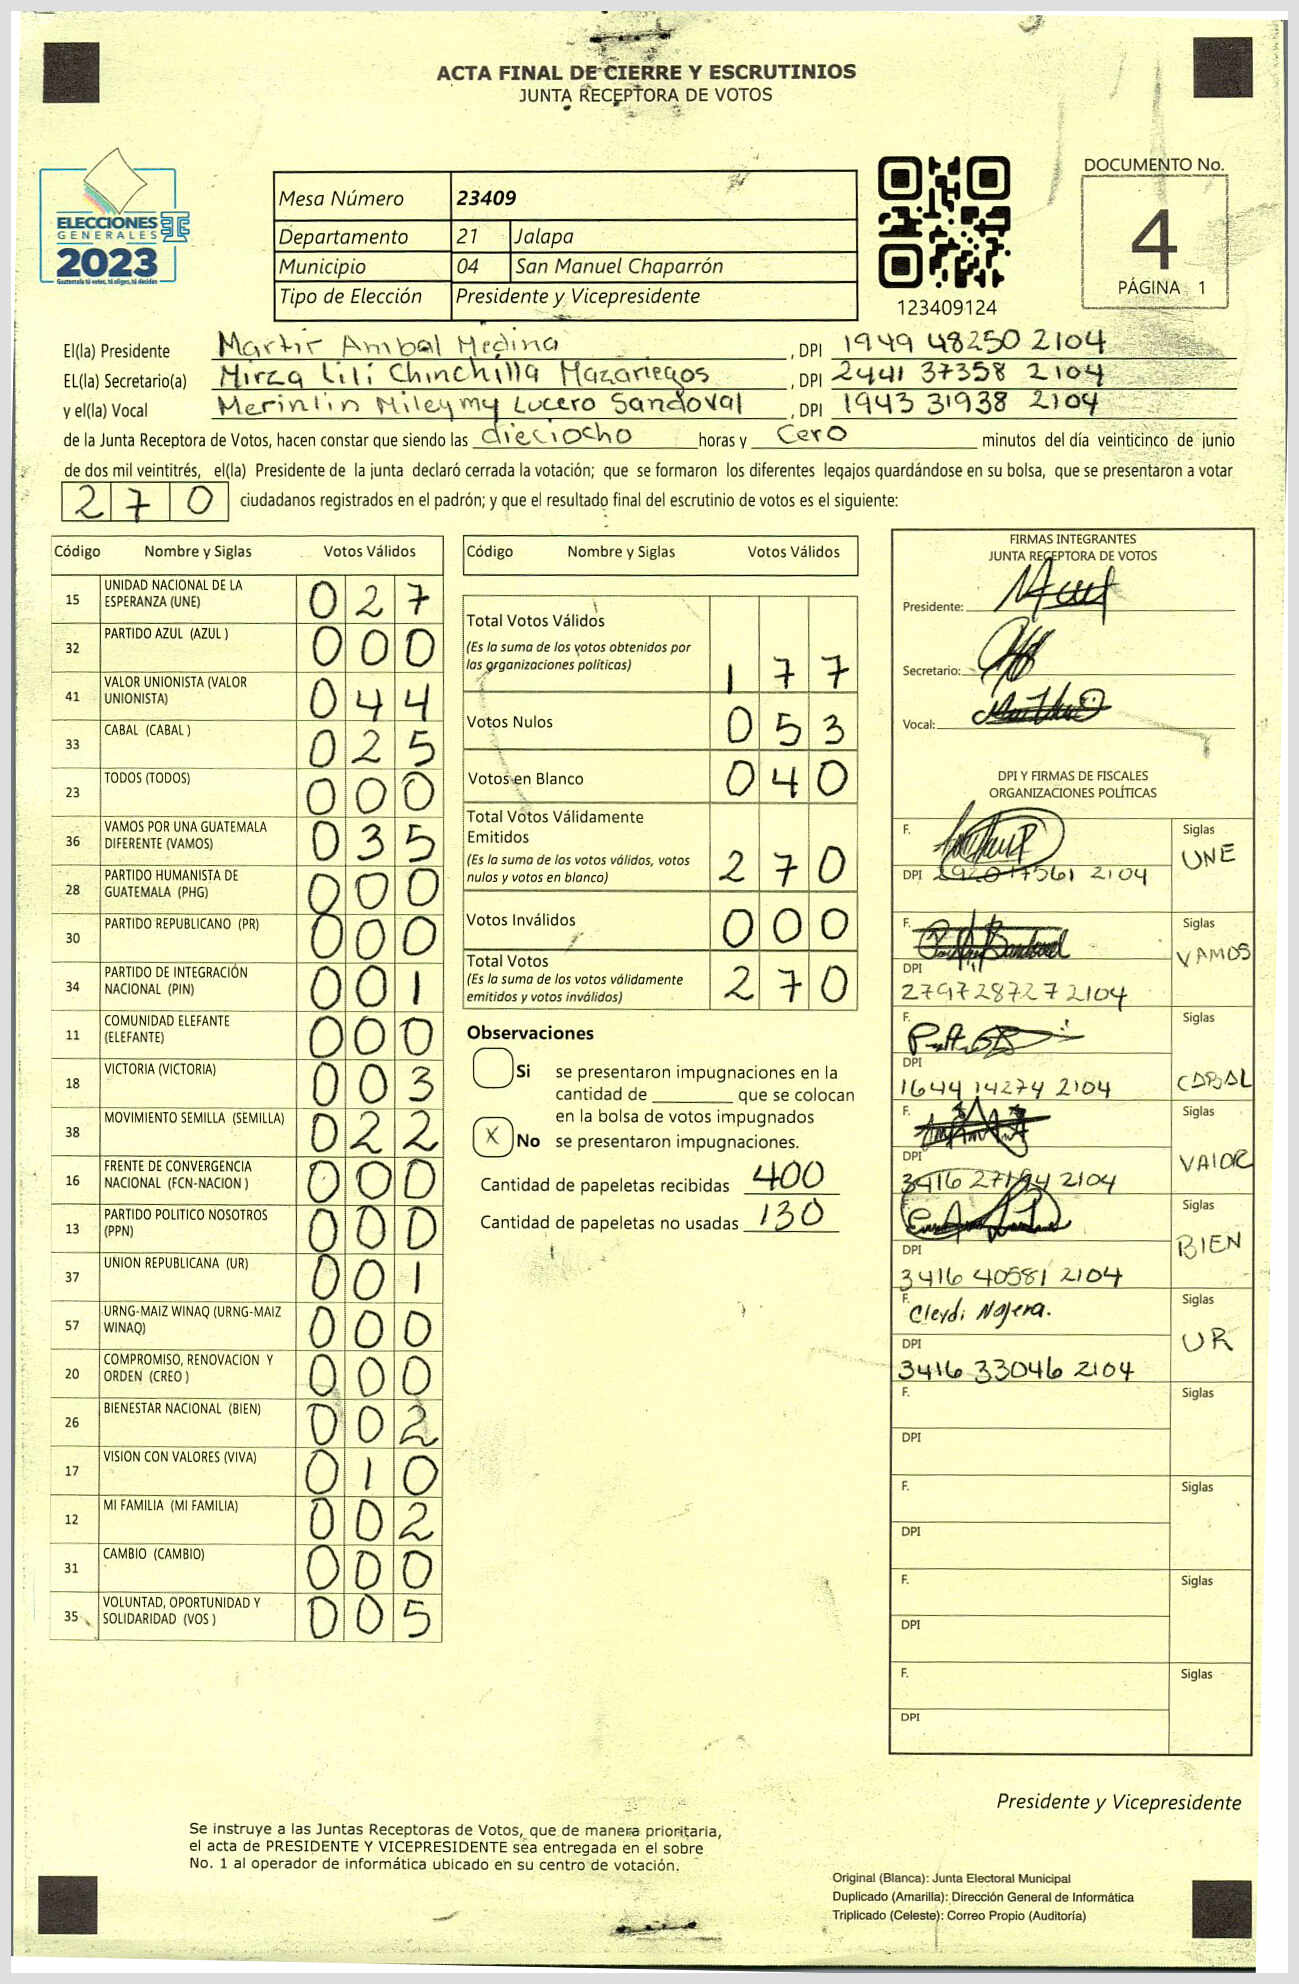 ACTA FINAL DE CIERRE Y ESCRUTINIOS
JUNTA RECEPTORA DE VOTOS
ELECCIONES
GENERALES
2023
Guatemala tú votas, tú eliges, tú decides
Mesa Número 23409
Departamento 21 Jalapa
Municipio 04 San Manuel Chaparrón
Tipo de Elección Presidente y Vicepresidente
123409124
DOCUMENTO No.
4
PÁGINA 1
El(la) Presidente Martir Anibal Medina , DPI 1949 48250 2104
EL(la) Secretario(a) Mirza Lili Chinchilla Mazariegos , DPI 2441 37358 2104
y el(la) Vocal Merinlin Mileymy Lucero Sandoval , DPI 1943 31938 2104
de la Junta Receptora de Votos, hacen constar que siendo las dieciocho horas y cero minutos del día veinticinco de junio
de dos mil veintitrés, el(la) Presidente de la junta declaró cerrada la votación; que se formaron los diferentes legajos quardándose en su bolsa, que se presentaron a votar
270 ciudadanos registrados en el padrón; y que el resultado final del escrutinio de votos es el siguiente:
Código Nombre y Siglas Votos Válidos
15 UNIDAD NACIONAL DE LA ESPERANZA (UNE) 027
32 PARTIDO AZUL (AZUL ) 000
41 VALOR UNIONISTA (VALOR UNIONISTA) 044
33 CABAL (CABAL ) 025
23 TODOS (TODOS) 000
36 VAMOS POR UNA GUATEMALA DIFERENTE (VAMOS) 035
28 PARTIDO HUMANISTA DE GUATEMALA (PHG) 000
30 PARTIDO REPUBLICANO (PR) 000
34 PARTIDO DE INTEGRACIÓN NACIONAL (PIN) 001
11 COMUNIDAD ELEFANTE (ELEFANTE) 000
18 VICTORIA (VICTORIA) 003
38 MOVIMIENTO SEMILLA (SEMILLA) 022
16 FRENTE DE CONVERGENCIA NACIONAL (FCN-NACION ) 000
13 PARTIDO POLITICO NOSOTROS (PPN) 000
37 UNION REPUBLICANA (UR) 001
57 URNG-MAIZ WINAQ (URNG-MAIZ WINAQ) 000
20 COMPROMISO, RENOVACION Y ORDEN (CREO ) 000
26 BIENESTAR NACIONAL (BIEN) 002
17 VISION CON VALORES (VIVA) 010
12 MI FAMILIA (MI FAMILIA) 002
31 CAMBIO (CAMBIO) 000
35 VOLUNTAD, OPORTUNIDAD Y SOLIDARIDAD (VOS ) 005
Código Nombre y Siglas Votos Válidos
Total Votos Válidos
(Es la suma de los votos obtenidos por
las organizaciones políticas) 177
Votos Nulos 053
Votos en Blanco 040
Total Votos Válidamente
Emitidos
(Es la suma de los votos válidos, votos
nulos y votos en blanco) 270
Votos Inválidos 000
Total Votos
(Es la suma de los votos válidamente
emitidos y votos inválidos) 270
Observaciones
Si se presentaron impugnaciones en la
cantidad de ________ que se colocan
en la bolsa de votos impugnados
X No se presentaron impugnaciones.
Cantidad de papeletas recibidas 400
Cantidad de papeletas no usadas 130
FIRMAS INTEGRANTES
JUNTA RECEPTORA DE VOTOS
Presidente:
Secretario:
Vocal:
DPI Y FIRMAS DE FISCALES
ORGANIZACIONES POLÍTICAS
F. Siglas
UNE
DPI 2104
F. Siglas
VAMOS
DPI
2797287272104
F. Siglas
DPI
1644 14274 2104 CABAL
F. Siglas
DPI VALOR
3416 27194 2104
F. Siglas
DPI BIEN
3416 40581 2104
F. Cleydi Najera. Siglas
DPI UR
3416 33046 2104
F. Siglas
DPI
F. Siglas
DPI
F. Siglas
DPI
F. Siglas
DPI
Presidente y Vicepresidente
Se instruye a las Juntas Receptoras de Votos, que de manera prioritaria,
el acta de PRESIDENTE Y VICEPRESIDENTE sea entregada en el sobre
No. 1 al operador de informática ubicado en su centro de votación.
Original (Blanca): Junta Electoral Municipal
Duplicado (Amarilla): Dirección General de Informática
Triplicado (Celeste): Correo Propio (Auditoría)